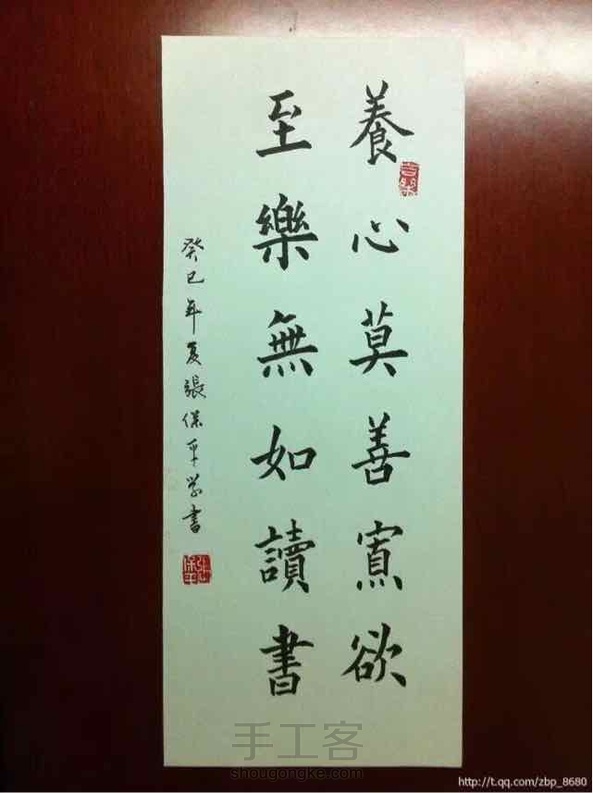 養心莫善寡欲
至樂無如讀書
癸巳年夏張保平學書
手工客
shougongke.com
http://t.qq.com/zbp_8680